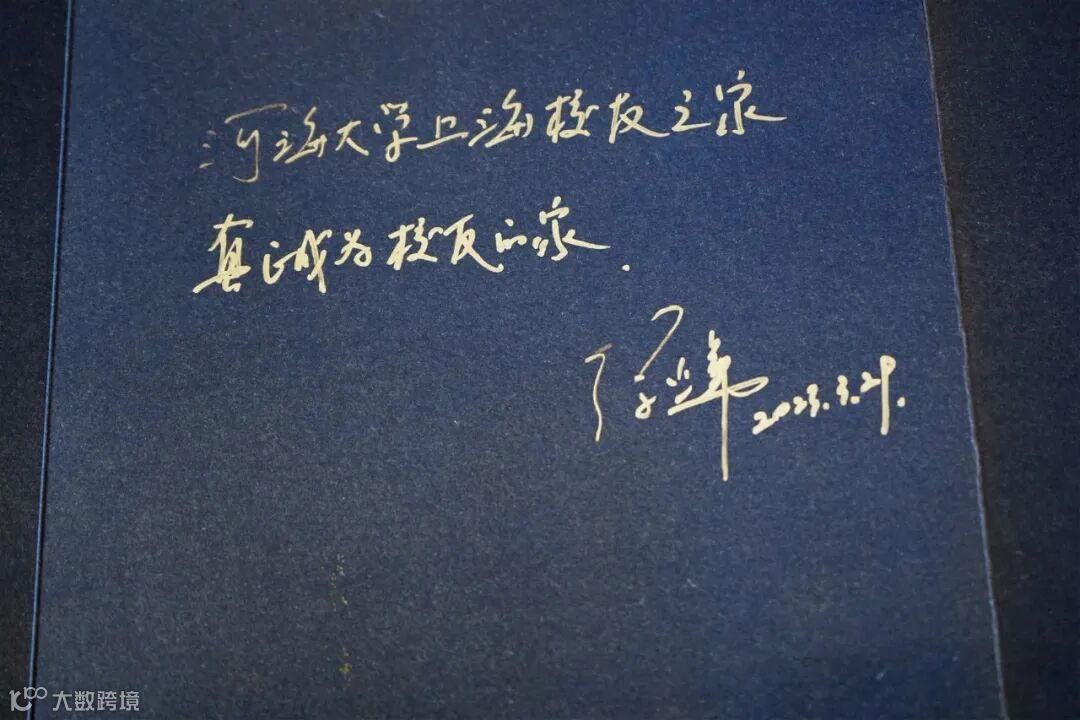 河海大学上海校友之家
真诚为校友的家.
2023.3.29.
大数跨境